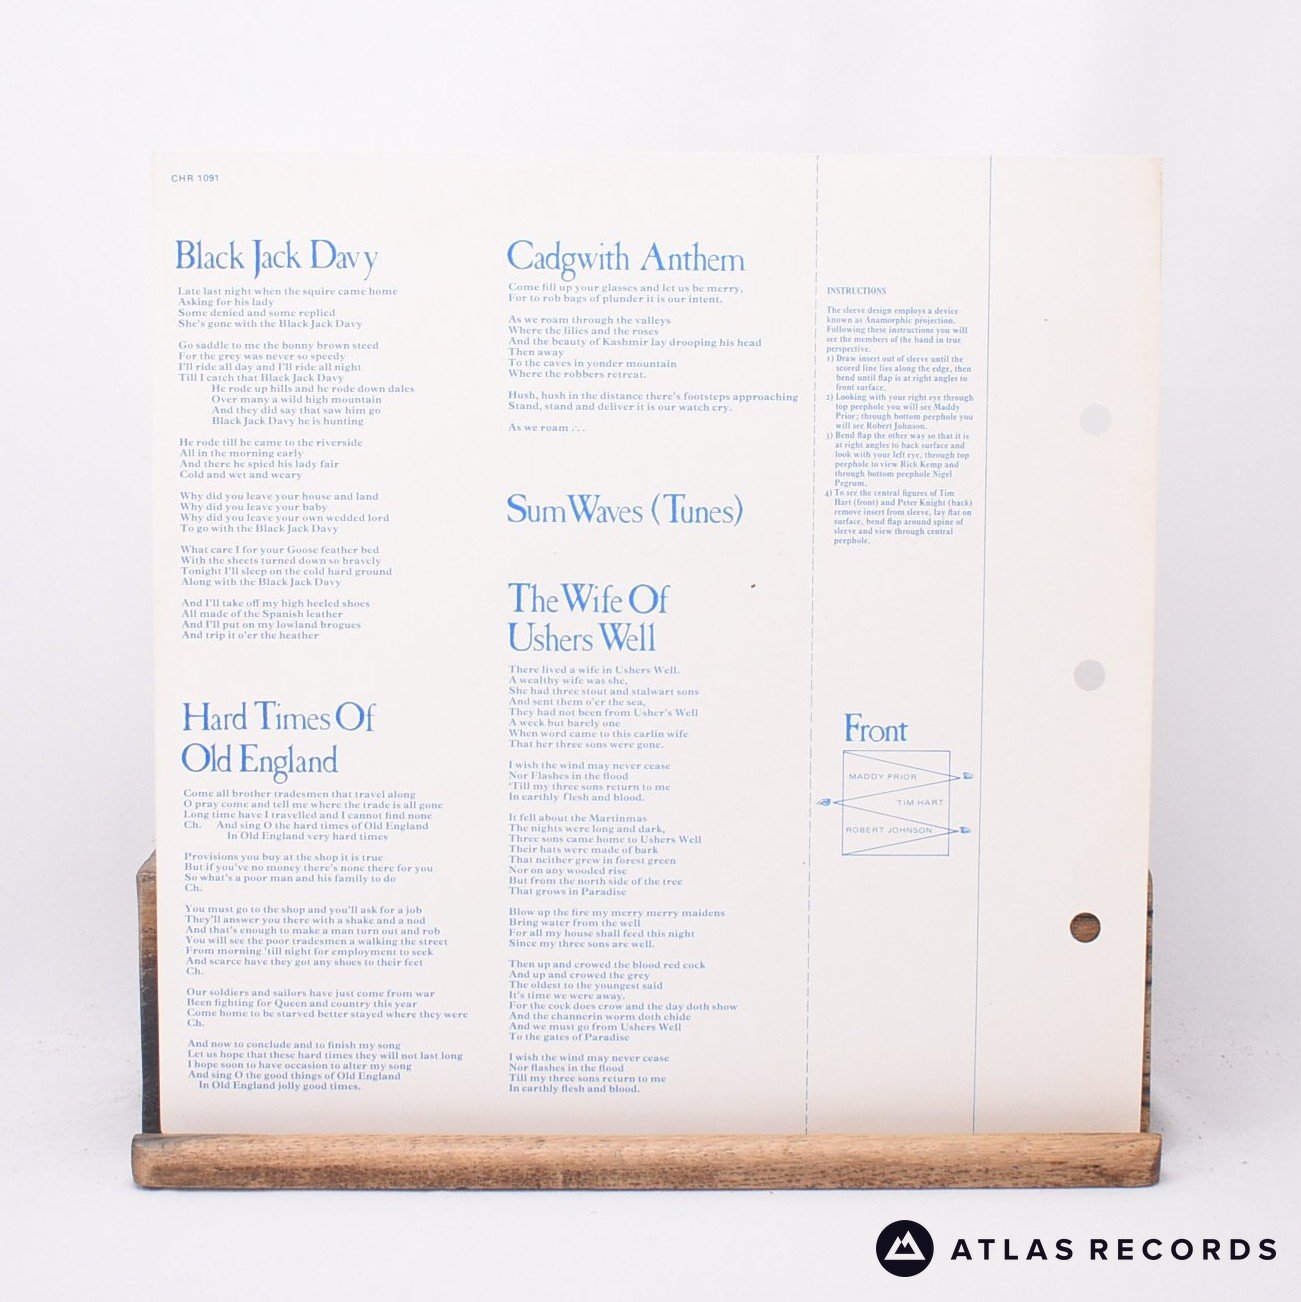 CHR 1091
Black Jack Davy
Late last night when the squire came home
Asking for his lady
Some denied and some replied
She's gone with the Black Jack Davy
Go saddle to me the bonny brown steed
For the grey was never so speedy
I'll ride all day and I'll ride all night
Till I catch that Black Jack Davy
He rode up hills and he rode down dales
Over many a wild high mountain
And they did say that saw him go
Black Jack Davy he is hunting
He rode till he came to the riverside
All in the morning early
And there he spied his lady fair
Cold and wet and weary
Why did you leave your house and land
Why did you leave your baby
Why did you leave your own wedded lord
To go with the Black Jack Davy
What care I for your Goose feather bed
With the sheets turned down so bravely
Tonight I'll sleep on the cold hard ground
Along with the Black Jack Davy
And I'll take off my high heeled shoes
All made of the Spanish leather
And I'll put on my lowland brogues
And trip it o'er the heather
Hard Times Of
Old England
Come all brother tradesmen that travel along
O pray come and tell me where the trade is all gone
Long time have I travelled and I cannot find none
Ch. And sing O the hard times of Old England
In Old England very hard times
Provisions you buy at the shop it is true
But if you've no money there's none there for you
So what's a poor man and his family to do
Ch.
You must go to the shop and you'll ask for a job
They'll answer you there with a shake and a nod
And that's enough to make a man turn out and rob
You will see the poor tradesmen a walking the street
From morning 'till night for employment to seek
And scarce have they got any shoes to their feet
Ch.
Our soldiers and sailors have just come from war
Been fighting for Queen and country this year
Come home to be starved better stayed where they were
Ch.
And now to conclude and to finish my song
Let us hope that these hard times they will not last long
I hope soon to have occasion to alter my song
And sing O the good things of Old England
In Old England jolly good times.
Cadgwith Anthem
Come fill up your glasses and let us be merry,
For to rob bags of plunder it is our intent.
As we roam through the valleys
Where the lilies and the roses
And the beauty of Kashmir lay drooping his head
Then away
To the caves in yonder mountain
Where the robbers retreat.
Hush, hush in the distance there's footsteps approaching
Stand, stand and deliver it is our watch cry.
As we roam . . .
Sum Waves (Tunes)
The Wife Of
Ushers Well
There lived a wife in Ushers Well.
A wealthy wife was she,
She had three stout and stalwart sons
And sent them o'er the sea,
They had not been from Usher's Well
A week but barely one
When word came to this carlin wife
That her three sons were gone.
I wish the wind may never cease
Nor Flashes in the flood
'Till my three sons return to me
In earthly flesh and blood.
It fell about the Martinmas
The nights were long and dark,
Three sons came home to Ushers Well
Their hats were made of bark
That neither grew in forest green
Nor on any wooded rise
But from the north side of the tree
That grows in Paradise
Blow up the fire my merry merry maidens
Bring water from the well
For all my house shall feed this night
Since my three sons are well.
Then up and crowed the blood red cock
And up and crowed the grey
The oldest to the youngest said
It's time we were away.
For the cock does crow and the day doth show
And the channerin worm doth chide
And we must go from Ushers Well
To the gates of Paradise
I wish the wind may never cease
Nor flashes in the flood
Till my three sons return to me
In earthly flesh and blood.
INSTRUCTIONS
The sleeve design employs a device
known as Anamorphic projection.
Following these instructions you will
see the members of the band in true
perspective.
1) Draw insert out of sleeve until the
scored line lies along the edge, then
bend until flap is at right angles to
front surface.
2) Looking with your right eye through
top peephole you will see Maddy
Prior; through bottom peephole you
will see Robert Johnson.
3) Bend flap the other way so that it is
at right angles to back surface and
look with your left eye, through top
peephole to view Rick Kemp and
through bottom peephole Nigel
Pegrum.
4) To see the central figures of Tim
Hart (front) and Peter Knight (back)
remove insert from sleeve, lay flat on
surface, bend flap around spine of
sleeve and view through central
peephole.
Front
MADDY PRIOR
TIM HART
ROBERT JOHNSON
ATLAS RECORDS